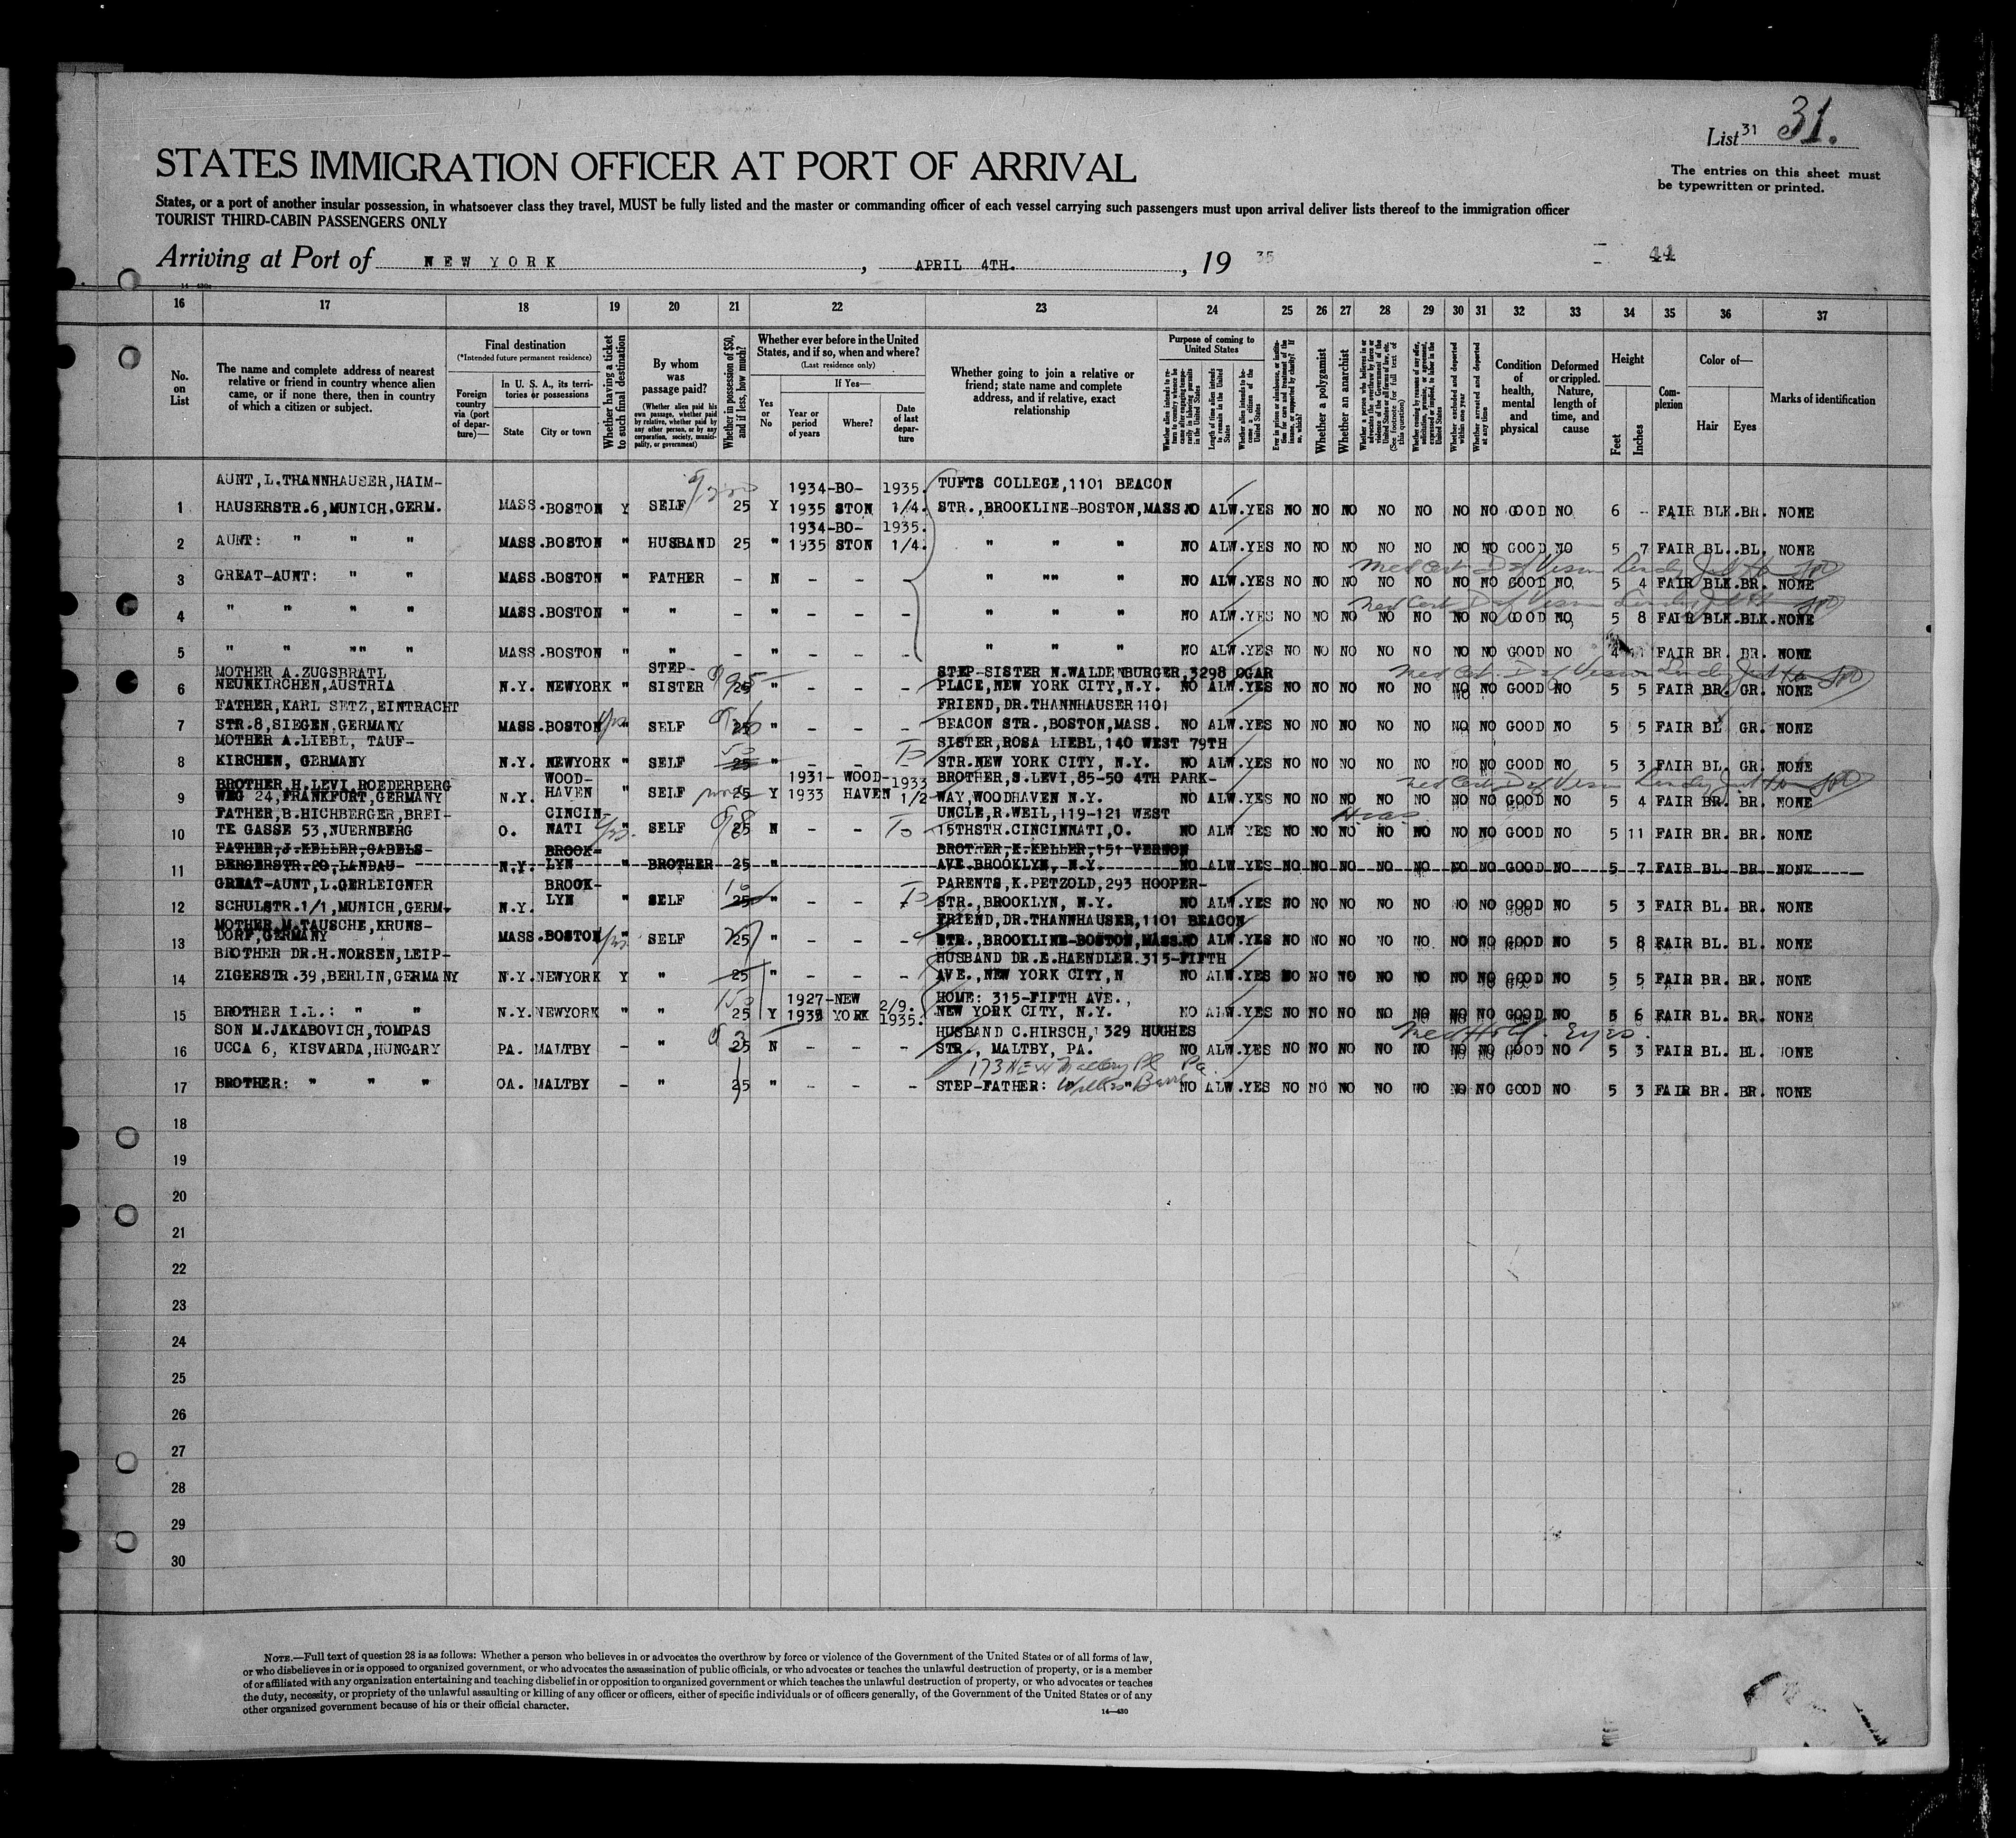 List 31 31.
The entries on this sheet must
be typewritten or printed.
STATES IMMIGRATION OFFICER AT PORT OF ARRIVAL
States, or a port of another insular possession, in whatsoever class they travel, MUST be fully listed and the master or commanding officer of each vessel carrying such passengers must upon arrival deliver lists thereof to the immigration officer
TOURIST THIRD-CABIN PASSENGERS ONLY
Arriving at Port of NEW YORK, APRIL 4TH., 19 35
44
14—430
16 17 18 19 20 21 22 23 24 25 26 27 28 29 30 31 32 33 34 35 36 37
No. on List
The name and complete address of nearest relative or friend in country whence alien came, or if none there, then in country of which a citizen or subject.
Final destination
(*Intended future permanent residence)
Foreign country via (port of departure)—
In U. S. A., its territories or possessions
State City or town
Whether having a ticket to such final destination
By whom was passage paid?
(Whether alien paid his own passage, whether paid by relative, whether paid by any other person, or by any corporation, society, municipality, or government)
Whether in possession of $50, and if less, how much?
Whether ever before in the United States, and if so, when and where?
(Last residence only)
Yes or No
If Yes—
Year or period of years Where? Date of last departure
Whether going to join a relative or friend; state name and complete address, and if relative, exact relationship
Purpose of coming to United States
Length of time alien intends to remain in the United States
Whether alien intends to become a citizen of the United States
Whether a polygamist
Whether an anarchist
Whether excluded and deported within one year
Whether arrested and deported at any time
Condition of health, mental and physical
Deformed or crippled. Nature, length of time, and cause
Height
Feet Inches
Complexion
Color of—
Hair Eyes
Marks of identification
AUNT,L.THANNHAUSER,HAIM- 1934-BO- 1935. TUFTS COLLEGE,1101 BEACON
1 HAUSERSTR.6,MUNICH.GERM. MASS.BOSTON Y SELF 25 Y 1935 STON 1/4. STR.,BROOKLINE-BOSTON,MASS NO ALW.YES NO NO NO NO NO NO NO GOOD NO 6 - FAIR BLK.BR. NONE
1934-BO- 1935.
2 AUNT: " " " MASS.BOSTON " HUSBAND 25 " 1935 STON 1/4. " " " NO ALW.YES NO NO NO NO NO NO NO GOOD NO 5 7 FAIR BL..BL. NONE
3 GREAT-AUNT: " " MASS.BOSTON " FATHER - N - - - " "" " NO ALW.YES NO NO NO NO NO NO NO GOOD NO 5 4 FAIR BLK.BR. NONE
4 " " " " MASS.BOSTON " " - " - - - " " " NO ALW.YES NO NO NO NO NO NO NO GOOD NO 5 8 FAIR BLK.BLK.NONE
5 " " "" " MASS.BOSTON " " - " - - - " " " NO ALW.YES NO NO NO NO NO NO NO GOOD NO 4 FAIR BR. BR. NONE
MOTHER A.ZUGSBRATL STEP- STEP-SISTER N.WALDENBURGER,3298 OGAR
6 NEUNKIRCHEN,AUSTRIA N.Y. NEWYORK " SISTER 25 " - - - PLACE,NEW YORK CITY,N.Y. NO ALW.YES NO NO NO NO NO NO NO GOOD NO 5 5 FAIR BR. GR. NONE
FATHER,KARL SETZ,EINTRACHT FRIEND,DR.THANNHAUSER 1101
7 STR.8,SIEGEN,GERMANY MASS.BOSTON " SELF 25 " - - - BEACON STR.,BOSTON,MASS. NO ALW.YES NO NO NO NO NO NO NO GOOD NO 5 5 FAIR BL GR. NONE
MOTHER A.LIEBL, TAUF- SISTER,ROSA LIEBL,140 WEST 79TH
8 KIRCHEN, GERMANY N.Y. NEWYORK " SELF 50 25 " - - STR.NEW YORK CITY, N.Y. NO ALW.YES NO NO NO NO NO NO NO GOOD NO 5 3 FAIR BL. GR. NONE
BROTHER,H.LEVI,ROEDERBERG WOOD- 1931- WOOD- 1933 BROTHER,S.LEVI,85-50 4TH PARK-
9 WEG 24,FRANKFURT,GERMANY N.Y. HAVEN " SELF 25 Y 1933 HAVEN 1/2 WAY,WOODHAVEN N.Y. NO ALW.YES NO NO NO NO NO NO NO GOOD NO 5 4 FAIR BR. BR. NONE
FATHER,B.HICHBERGER,BREI- CINCIN- UNCLE,R.WEIL,119-121 WEST Hias
10 TE GASSE 53,NUERNBERG O. NATI " SELF 25 N - - 15THSTR.CINCINNATI,O. NO ALW YES NO NO NO NO NO NO NO GOOD NO 5 11 FAIR BR. BR. NONE
FATHER,J.KELLER,GABELS- BROOK- BROTHER,K.KELLER,151 VERNON
11 BERGERSTR.20,LANDAU- N.Y. LYN " BROTHER 25 " AVE.BROOKLYN, N.Y. NO ALW.YES NO NO NO NO NO NO NO GOOD NO 5 7 FAIR BL. BR NONE
GREAT-AUNT,L.GERLEIGNER BROOK- PARENTS,K.PETZOLD,293 HOOPER-
12 SCHULSTR.1/1,MUNICH,GERM. N.Y. LYN " SELF 25 " - - STR.,BROOKLYN, N.Y. NO ALW.YES NO NO NO NO NO NO NO GOOD NO 5 3 FAIR BL. BR. NONE
MOTHER M.TAUSCHE,KRUNS- FRIEND,DR.THANNHAUSER,1101 BEACON
13 DORF,GERMANY MASS.BOSTON SELF 25 " - - - STR.,BROOKLINE-BOSTON,MASS.NO ALW.YES NO NO NO NO NO NO NO GOOD NO 5 8 FAIR BL. BL. NONE
BROTHER DR.H.NORSEN,LEIP- HUSBAND DR.E.HAENDLER.315-FIFTH
14 ZIGERSTR.39,BERLIN,GERMANY N.Y.NEWYORK Y " 25 " - - - AVE.,NEW YORK CITY,N NO ALW.YES NO NO NO NO NO NO NO GOOD NO 5 5 FAIR BR. BR. NONE
150 1927-NEW 2/9. HOME: 315-FIFTH AVE.,
15 BROTHER I.L.: " " N.Y.NEWYORK " " 25 Y 1935 YORK 1935. NEW YORK CITY, N.Y. NO ALW.YES NO NO NO NO NO NO NO GOOD NO 5 6 FAIR BL. BR. NONE
SON M.JAKABOVICH,TOMPAS HUSBAND C.HIRSCH, 329 HUGHES Med Hold. Eyes.
16 UCCA 6, KISVARDA,HUNGARY PA. MALTBY - " 25 N - - - STR., MALTBY, PA. NO ALW.YES NO NO NO NO NO NO NO GOOD NO 5 3 FAIR BL. BL. NONE
173 New Mallery Pl Pa.
17 BROTHER: " " " OA. MALTBY - " 25 " - - - STEP-FATHER: " " Wilkes Barre NO ALW.YES NO NO NO NO NO NO NO GOOD NO 5 3 FAIR BR. BR. NONE
18
19
20
21
22
23
24
25
26
27
28
29
30
NOTE.—Full text of question 28 is as follows: Whether a person who believes in or advocates the overthrow by force or violence of the Government of the United States or of all forms of law,
or who disbelieves in or is opposed to organized government, or who advocates the assassination of public officials, or who advocates or teaches the unlawful destruction of property, or is a member
of or affiliated with any organization entertaining and teaching disbelief in or opposition to organized government or which teaches the unlawful destruction of property, or who advocates or teaches
the duty, necessity, or propriety of the unlawful assaulting or killing of any officer or officers, either of specific individuals or of officers generally, of the Government of the United States or of any
other organized government because of his or their official character.
14—430